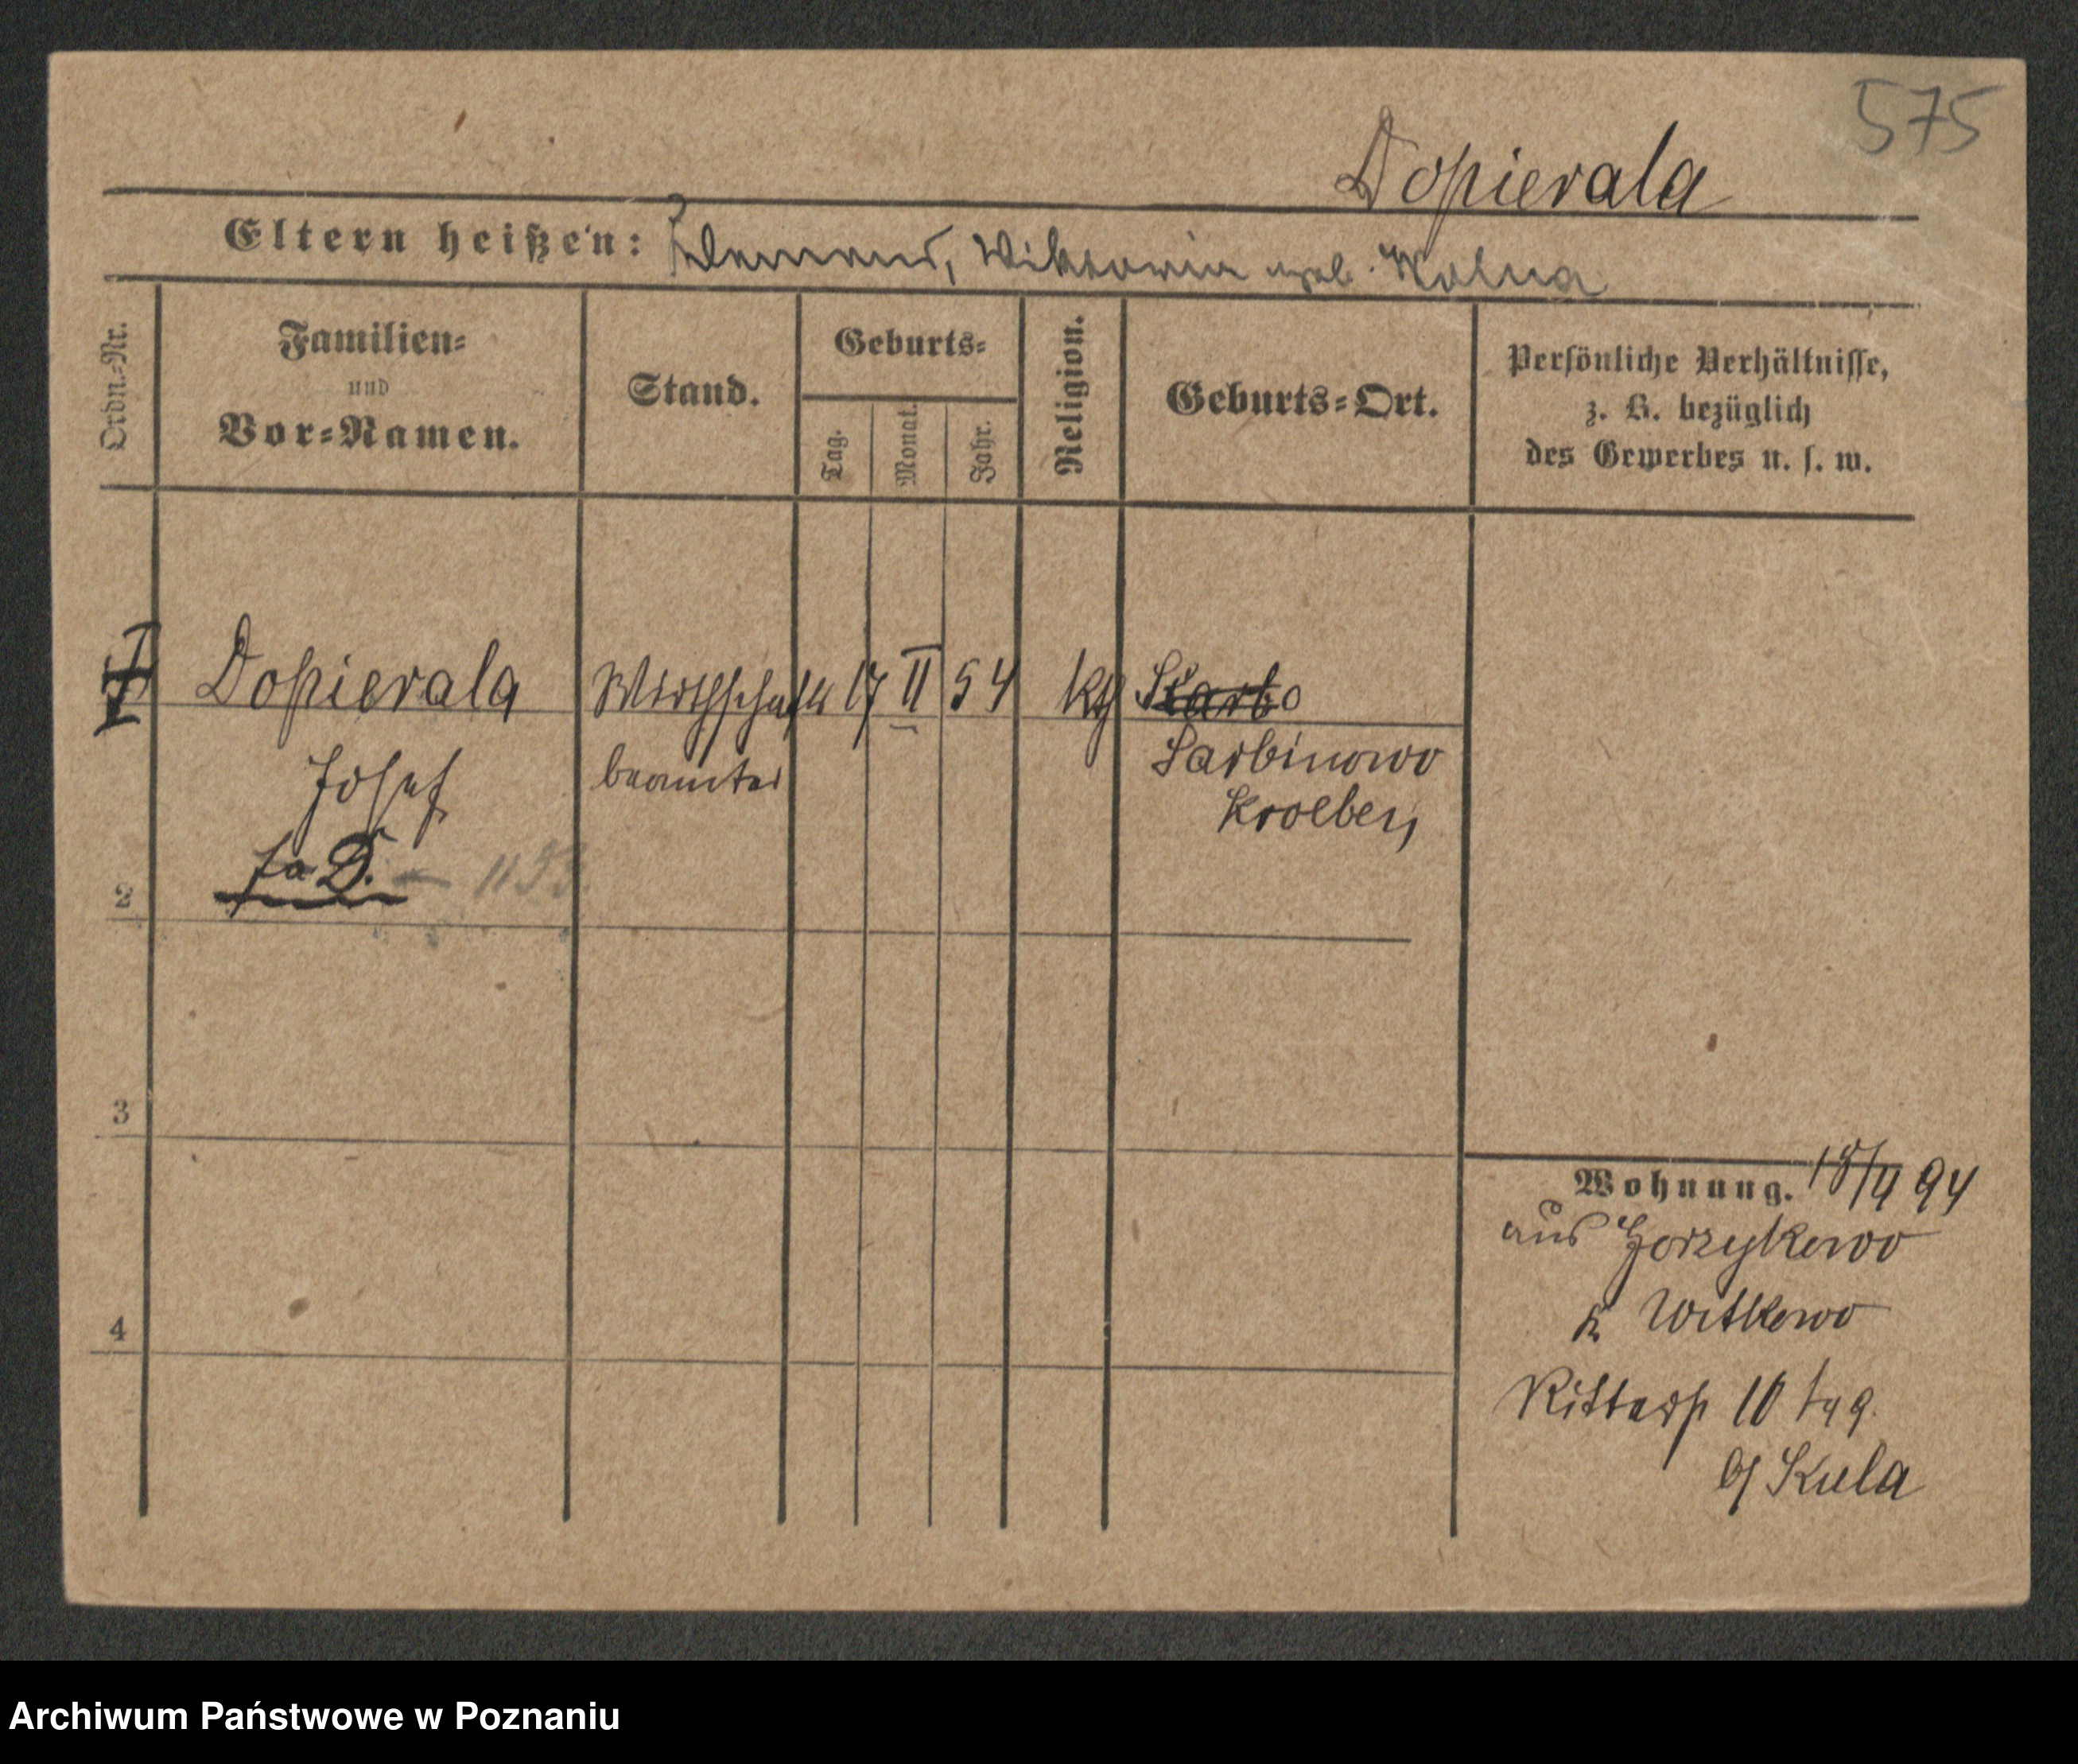 575
Dopierala
Eltern heißen: Wiktoria geb. Wolna
Ordn.-Nr.
Familien-
und
Vor-Namen.
Stand.
Geburts-
Tag.
Monat.
Jahr.
Religion.
Geburts-Ort.
Persönliche Verhältnisse,
z. B. bezüglich
des Gewerbes u. s. w.
I Dopierala Wirthschafts 17 II 54 kth
Josef beamter Sarbinowo
Kroeben
fa D. 1153.
2
3
4
Wohnung. 18/4 94
aus Gorzykowo
k Witkowo
Ritterst 10
b/ Kula
Archiwum Państwowe w Poznaniu